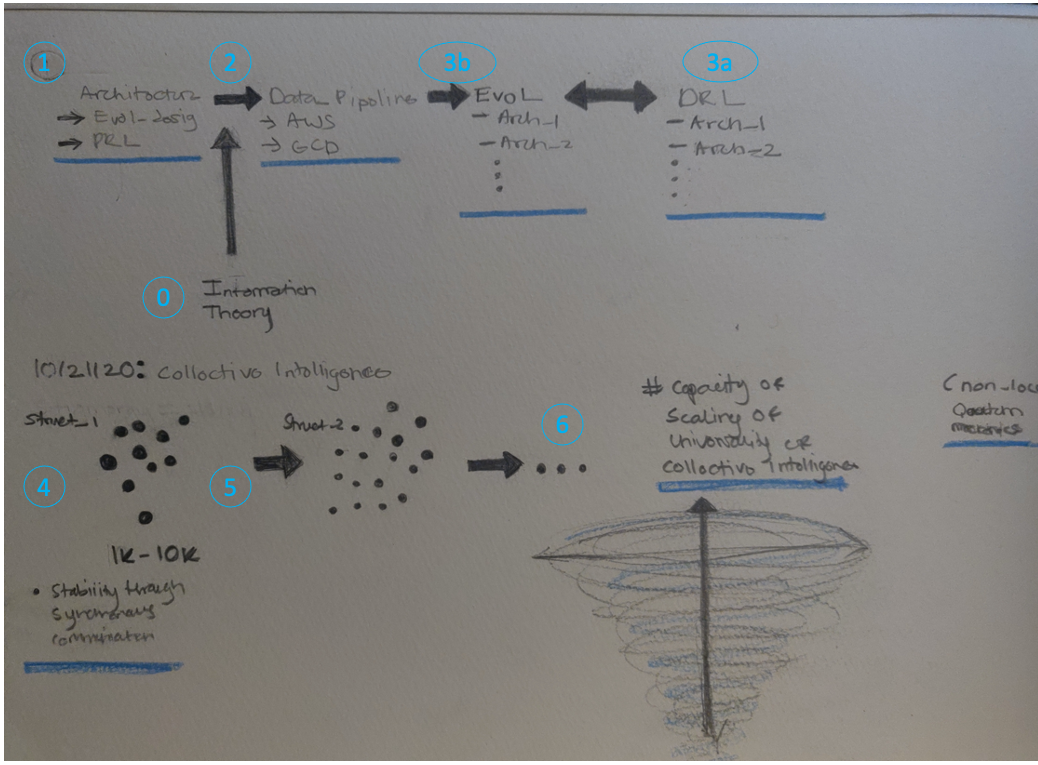 1
2
3b
3a
Architectur
→ Evol-desig
→ DRL
Data Pipeline
→ AWS
→ GCD
Evol
- Arch_1
- Arch_2
DRL
- Arch_1
- Arch_2
0
Information
Theory
10/21/20: Collective Intelligence
Struct_1
4
1K-10K
• Stability through
Synchronous
5
Struct-2
6
# Capacity of
Scaling of
Universality or
Collective Intelligence
(non-loc
Quantum
mechanics